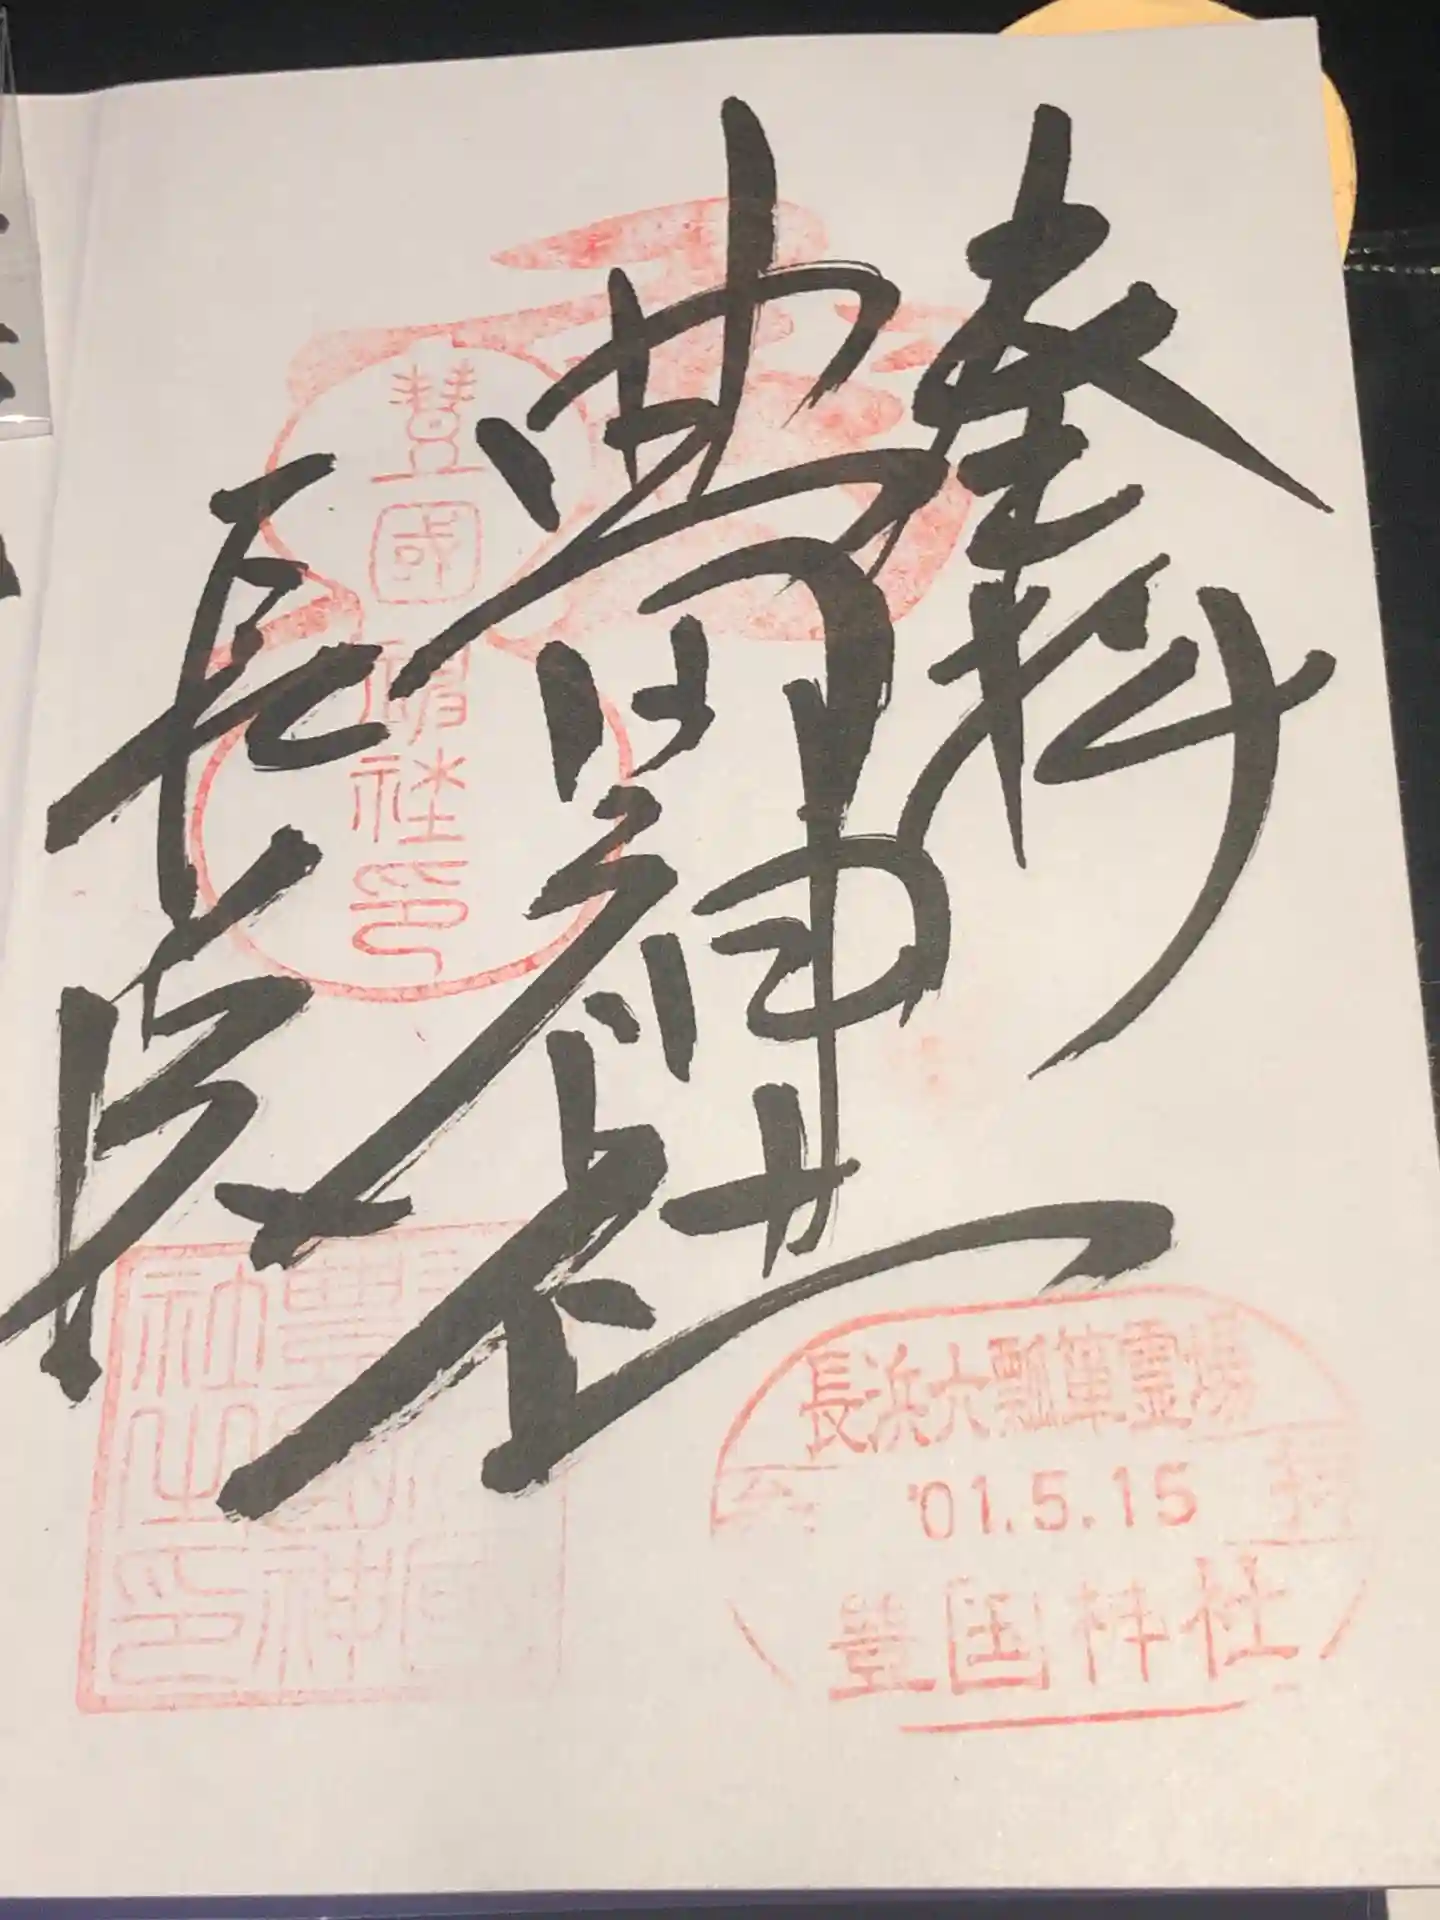 奉拝
豊国神社
長浜
豊國神社印
長浜六瓢箪霊場
'01.5.15
豊国神社